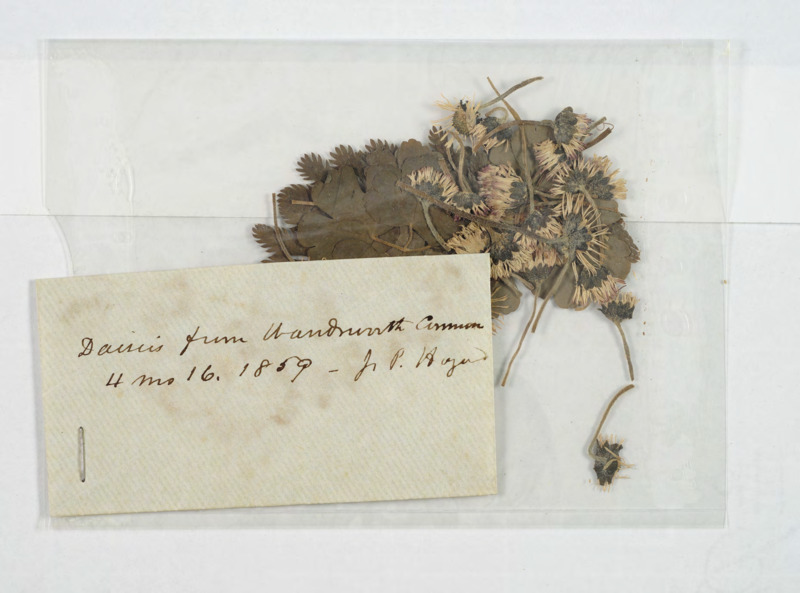 Daisies from Wandsworth Common
4 mo 16. 1859 - J. P. Hazard